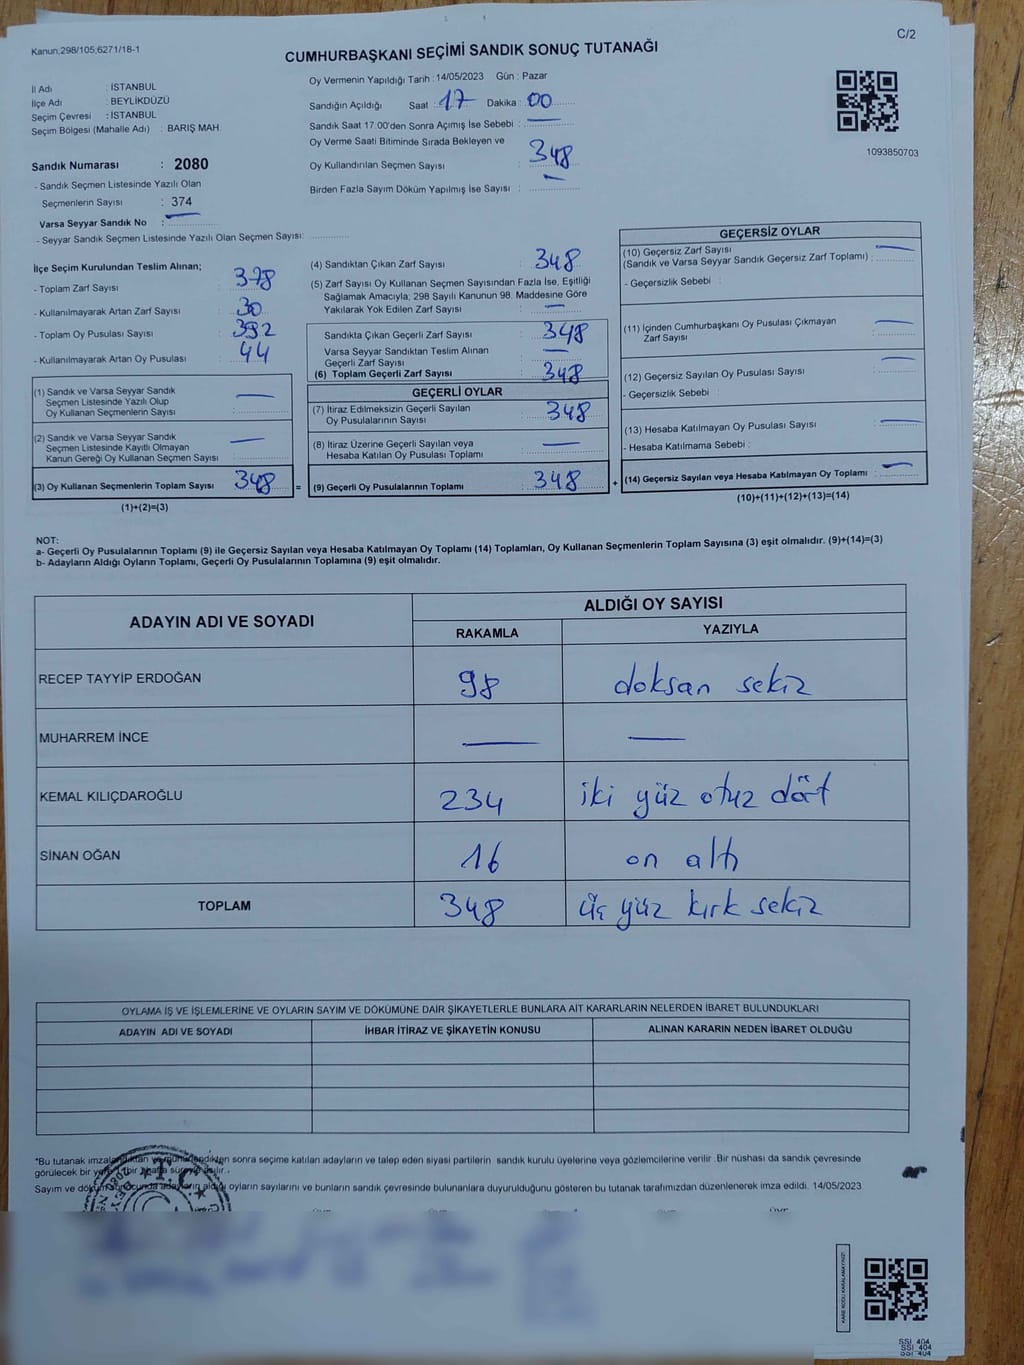 Kanun,298/105,6271/18-1
C/2
CUMHURBAŞKANI SEÇİMİ SANDIK SONUÇ TUTANAĞI
İl Adı : İSTANBUL
İlçe Adı : BEYLİKDÜZÜ
Seçim Çevresi : İSTANBUL
Seçim Bölgesi (Mahalle Adı) : BARIŞ MAH.
Sandık Numarası : 2080
- Sandık Seçmen Listesinde Yazılı Olan
Seçmenlerin Sayısı : 374
Varsa Seyyar Sandık No : —
- Seyyar Sandık Seçmen Listesinde Yazılı Olan Seçmen Sayısı:
Oy Vermenin Yapıldığı Tarih : 14/05/2023 Gün : Pazar
Sandığın Açıldığı Saat : 17 Dakika : 00
Sandık Saat 17:00'den Sonra Açımış İse Sebebi : —
Oy Verme Saati Bitiminde Sırada Bekleyen ve
Oy Kullandırılan Seçmen Sayısı : 348
Birden Fazla Sayım Döküm Yapılmış İse Sayısı : —
1093850703
İlçe Seçim Kurulundan Teslim Alınan;
- Toplam Zarf Sayısı : 378
- Kullanılmayarak Artan Zarf Sayısı : 30
- Toplam Oy Pusulası Sayısı : 392
- Kullanılmayarak Artan Oy Pusulası : 44
(1) Sandık ve Varsa Seyyar Sandık
Seçmen Listesinde Yazılı Olup
Oy Kullanan Seçmenlerin Sayısı : —
(2) Sandık ve Varsa Seyyar Sandık
Seçmen Listesinde Kayıtlı Olmayan
Kanun Gereği Oy Kullanan Seçmen Sayısı : —
(3) Oy Kullanan Seçmenlerin Toplam Sayısı : 348
(1)+(2)=(3)
=
(4) Sandıktan Çıkan Zarf Sayısı : 348
(5) Zarf Sayısı Oy Kullanan Seçmen Sayısından Fazla İse, Eşitliği
Sağlamak Amacıyla; 298 Sayılı Kanunun 98. Maddesine Göre
Yakılarak Yok Edilen Zarf Sayısı : —
Sandıkta Çıkan Geçerli Zarf Sayısı : 348
Varsa Seyyar Sandıktan Teslim Alınan
Geçerli Zarf Sayısı : —
(6) Toplam Geçerli Zarf Sayısı : 348
GEÇERLİ OYLAR
(7) İtiraz Edilmeksizin Geçerli Sayılan
Oy Pusulalarının Sayısı : 348
(8) İtiraz Üzerine Geçerli Sayılan veya
Hesaba Katılan Oy Pusulası Toplamı : —
(9) Geçerli Oy Pusulalarının Toplamı : 348
+
GEÇERSİZ OYLAR
(10) Geçersiz Zarf Sayısı
(Sandık ve Varsa Seyyar Sandık Geçersiz Zarf Toplamı) : —
- Geçersizlik Sebebi :
(11) İçinden Cumhurbaşkanı Oy Pusulası Çıkmayan
Zarf Sayısı : —
(12) Geçersiz Sayılan Oy Pusulası Sayısı : —
- Geçersizlik Sebebi :
(13) Hesaba Katılmayan Oy Pusulası Sayısı : —
- Hesaba Katılmama Sebebi :
(14) Geçersiz Sayılan veya Hesaba Katılmayan Oy Toplamı : —
(10)+(11)+(12)+(13)=(14)
NOT:
a- Geçerli Oy Pusulalarının Toplamı (9) ile Geçersiz Sayılan veya Hesaba Katılmayan Oy Toplamı (14) Toplamları, Oy Kullanan Seçmenlerin Toplam Sayısına (3) eşit olmalıdır. (9)+(14)=(3)
b- Adayların Aldığı Oyların Toplamı, Geçerli Oy Pusulalarının Toplamına (9) eşit olmalıdır.
ADAYIN ADI VE SOYADI
ALDIĞI OY SAYISI
RAKAMLA YAZIYLA
RECEP TAYYİP ERDOĞAN 98 doksan sekiz
MUHARREM İNCE — —
KEMAL KILIÇDAROĞLU 234 iki yüz otuz dört
SİNAN OĞAN 16 on altı
TOPLAM 348 üç yüz kırk sekiz
OYLAMA İŞ VE İŞLEMLERİNE VE OYLARIN SAYIM VE DÖKÜMÜNE DAİR ŞİKAYETLERLE BUNLARA AİT KARARLARIN NELERDEN İBARET BULUNDUKLARI
ADAYIN ADI VE SOYADI İHBAR İTİRAZ VE ŞİKAYETİN KONUSU ALINAN KARARIN NEDEN İBARET OLDUĞU
*Bu tutanak sonra seçime katılan adayların ve talep eden siyasi partilerin sandık kurulu üyelerine veya gözlemcilerine verilir .Bir nüshası da sandık çevresinde
görülecek bir
Sayım ve oyların sayılarını ve bunların sandık çevresinde bulunanlara duyurulduğunu gösteren bu tutanak tarafımızdan düzenlenerek imza edildi. 14/05/2023
T.C.
KARE KODU KARALAMAYINIZ!
SSI 404
SSI 404
SSI 404